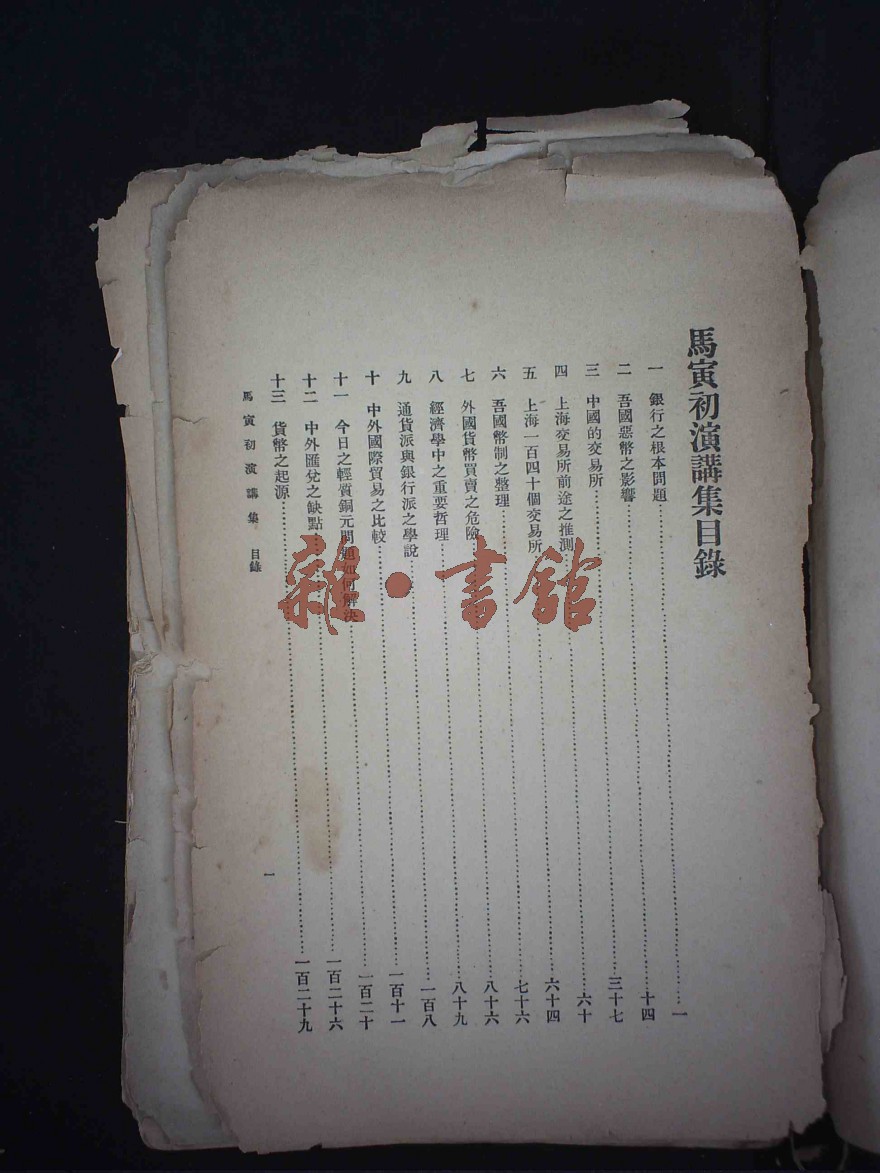 馬寅初演講集目錄
一 銀行之根本問題……一
二 吾國惡幣之影響……十四
三 中國的交易所……三十七
四 上海交易所前途之推測……六十
五 上海一百四十個交易所……六十四
六 吾國幣制之整理……七十六
七 外國貨幣買賣之危險……八十六
八 經濟學中之重要哲理……八十九
九 通貨派與銀行派之學說……一百八
十 中外國際貿易之比較……一百十一
十一 今日之輕質銅元問題如何解決……一百二十
十二 中外匯兌之缺點……一百二十六
十三 貨幣之起源……一百二十九
馬寅初演講集 目錄
一
雜·書館